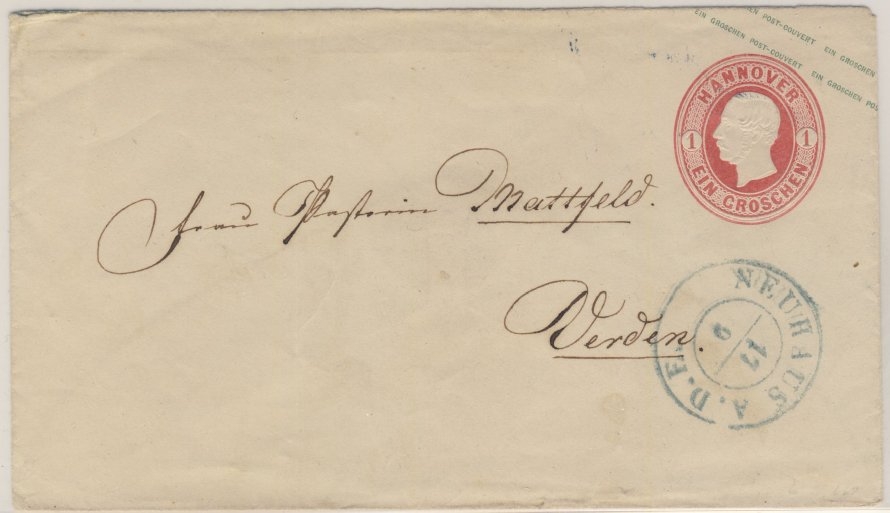 POST-COUVERT EIN GROSCHEN
EIN GROSCHEN POST-COUVERT EIN GROSCHEN POS
HANNOVER
1 1
EIN GROSCHEN
Frau Pastorin Mattfeld.
Verden.
NEUHAUS A.D.E.
17
9